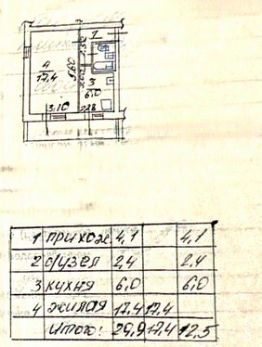 1
4
17,4
5,60
3
6,0
3,10
2,28
1 прихож 4,1 4,1
2 с/узел 2,4 2,4
3 кухня 6,0 6,0
4 жилая 17,4 17,4
итого: 29,9 17,4 12,5